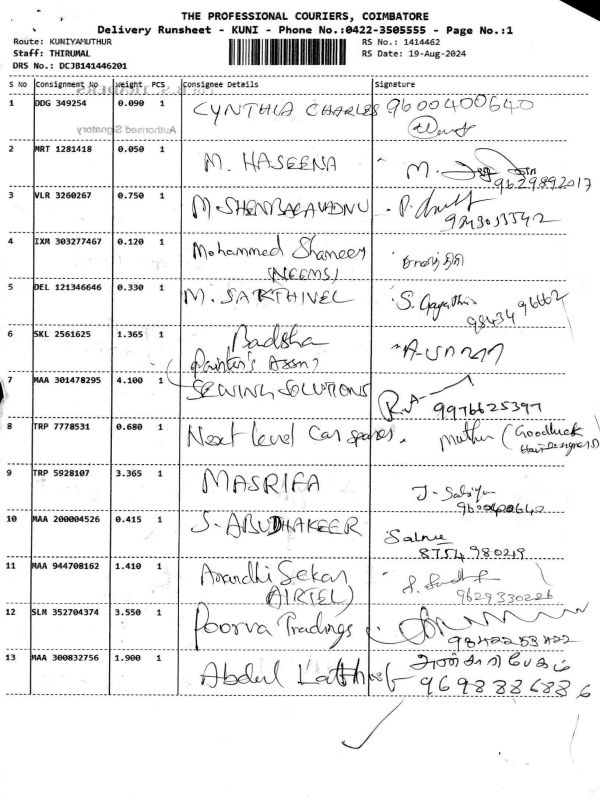 THE PROFESSIONAL COURIERS, COIMBATORE
Delivery Runsheet - KUNI - Phone No.:0422-3505555 - Page No.:1
Route: KUNIYAMUTHUR
RS No.: 1414462
Staff: THIRUMAL
RS Date: 19-Aug-2024
DRS No.: DCJB141446201
S No Consignment No Weight PCS Consignee Details Signature
1 DDG 349254 0.090 1 CYNTHIA CHARLES 9600400640
Authorised Signatory
2 MRT 1281418 0.050 1 M. HASEENA M.
9629892017
3 VLR 3260267 0.750 1 P.
4 IXM 303277467 0.120 1 Mohammed Shameer
(NEEMS)
5 DEL 121346646 0.330 1 M. SAKTHIVEL S. Gayathri
98434 96662
6 SKL 2561625 1.365 1 Badsha
Painter's Assn
7 MAA 301478295 4.100 1 SEWING SOLUTIONS R.A
9976625397
8 TRP 7778531 0.680 1 Next level Car spares. Muthu (Goodluck
Hair Designers)
9 TRP 5928107 3.365 1 MASRIFA J-
9600400640
10 MAA 200004526 0.415 1 S-ABUDHAKEER Salma
8754980219
11 MAA 944708162 1.410 1 Anandhi Sekar
(AIRTEL)
9629330226
12 SLM 352704374 3.550 1 Poorva Tradings
9842253422
13 MAA 300832756 1.900 1 Abdul Latthief
9698886886